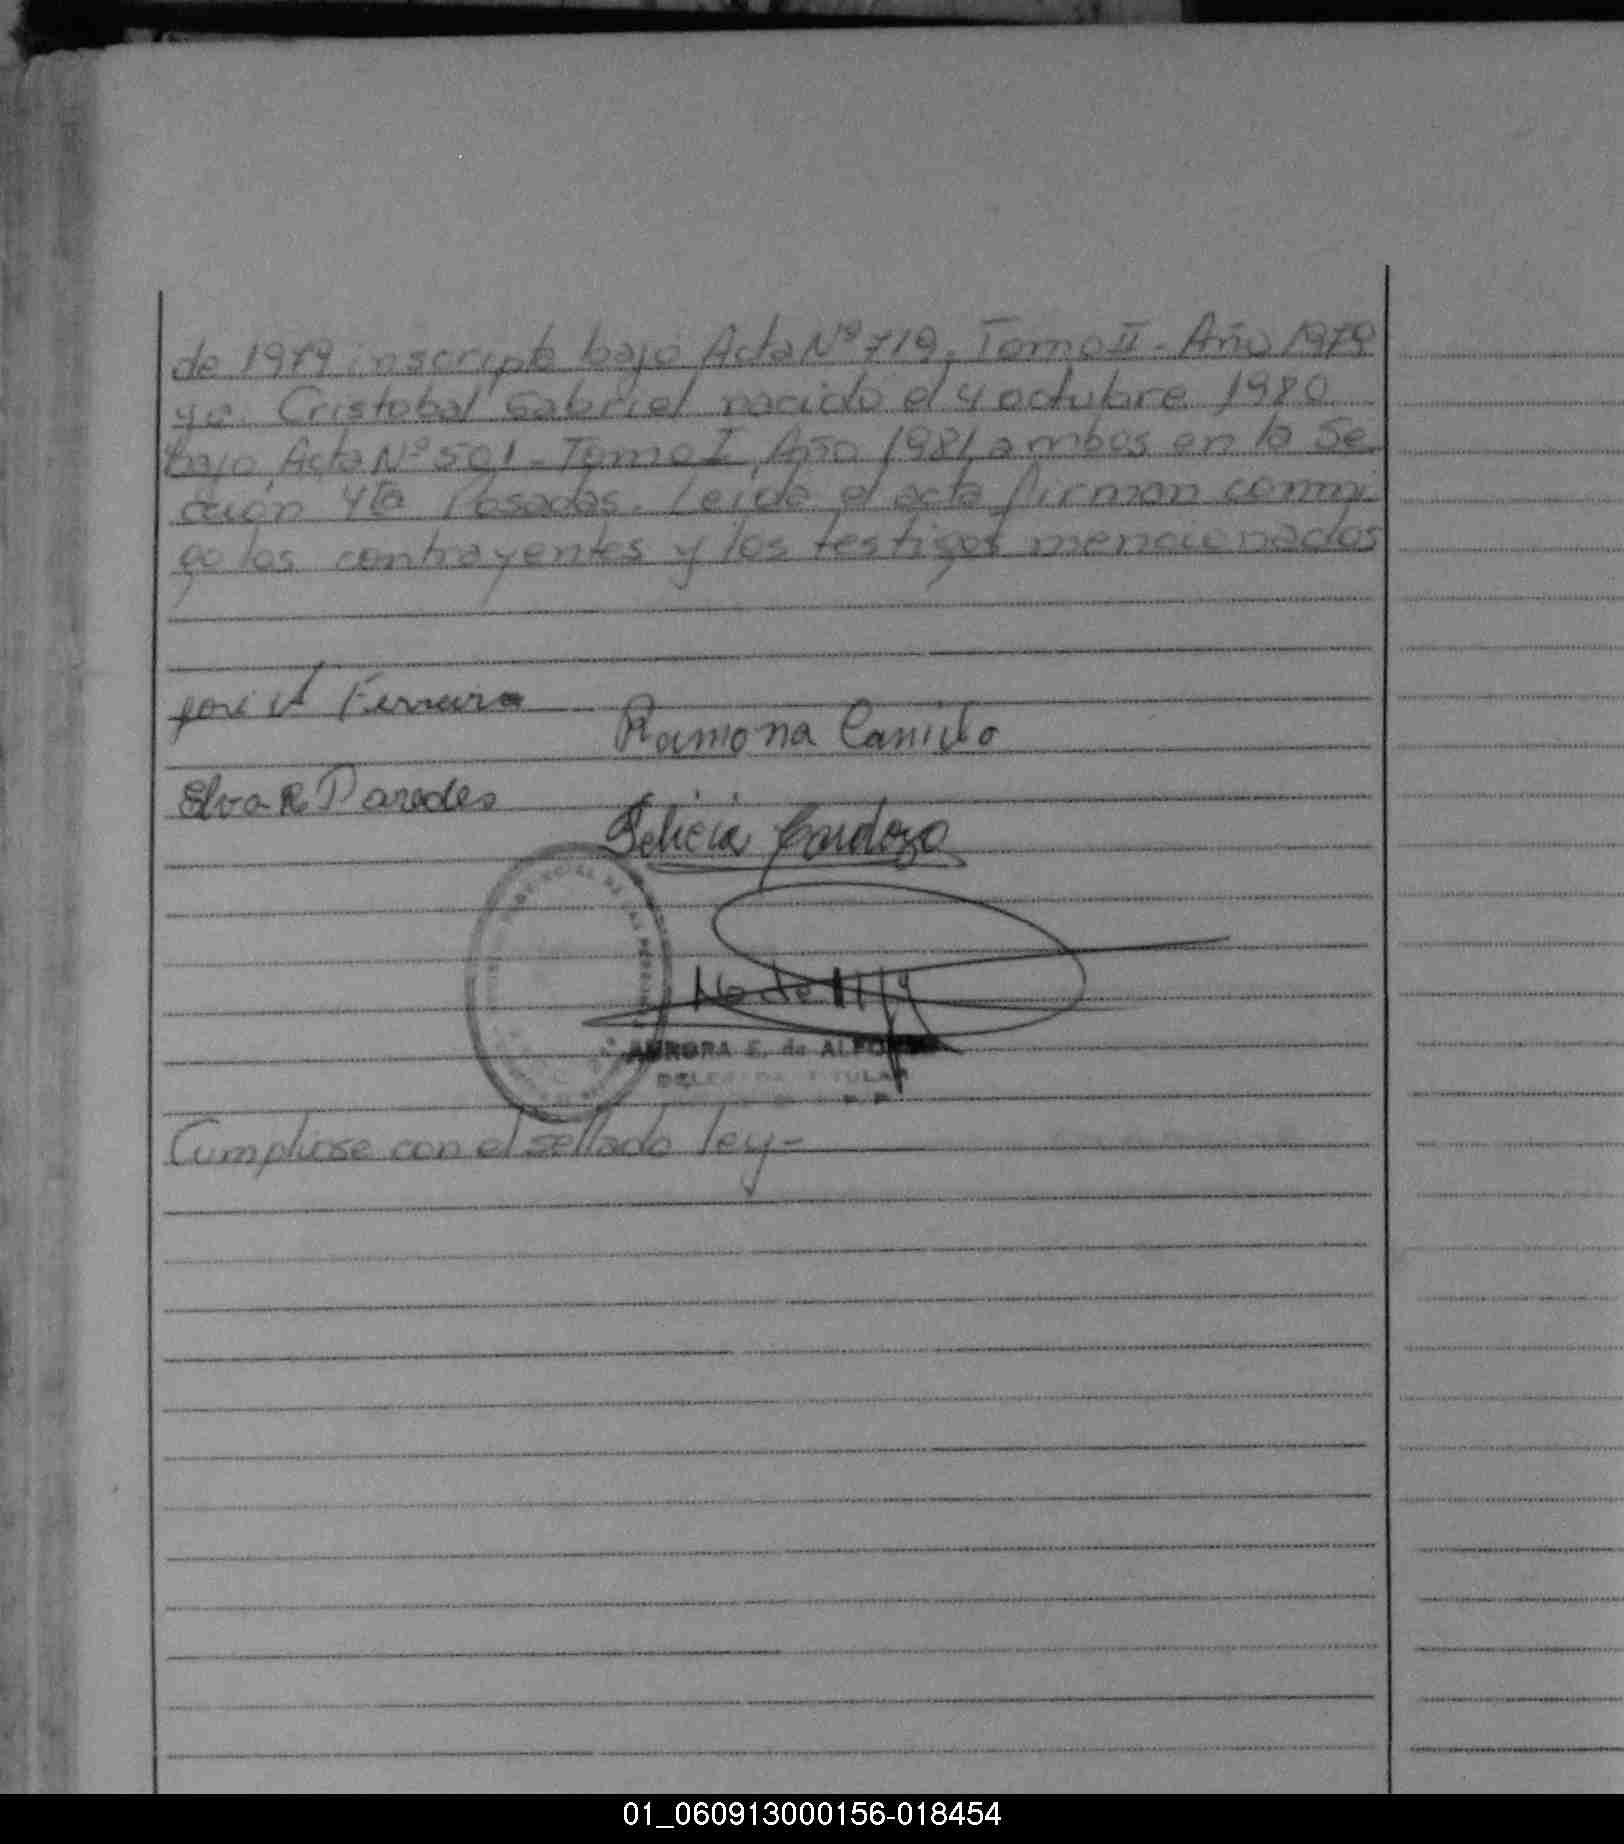 de 1979 inscripto bajo Acta Nº 719, Tomo II - Año 1979
y a. Cristobal Gabriel nacido el 4 octubre 1980
bajo Acta Nº 501 - Tomo I, Año 1981, ambos en la Se
cción 4ta Posadas. Leida el acta firman conmi
go los contrayentes y los testigos mencionados
Ferreira
Ramona Canido
Elva R Paredes
Felicia Cardozo
AURORA E. de
DELEGADA TITULAR
Cumpliose con el sellado ley-
01_060913000156-018454